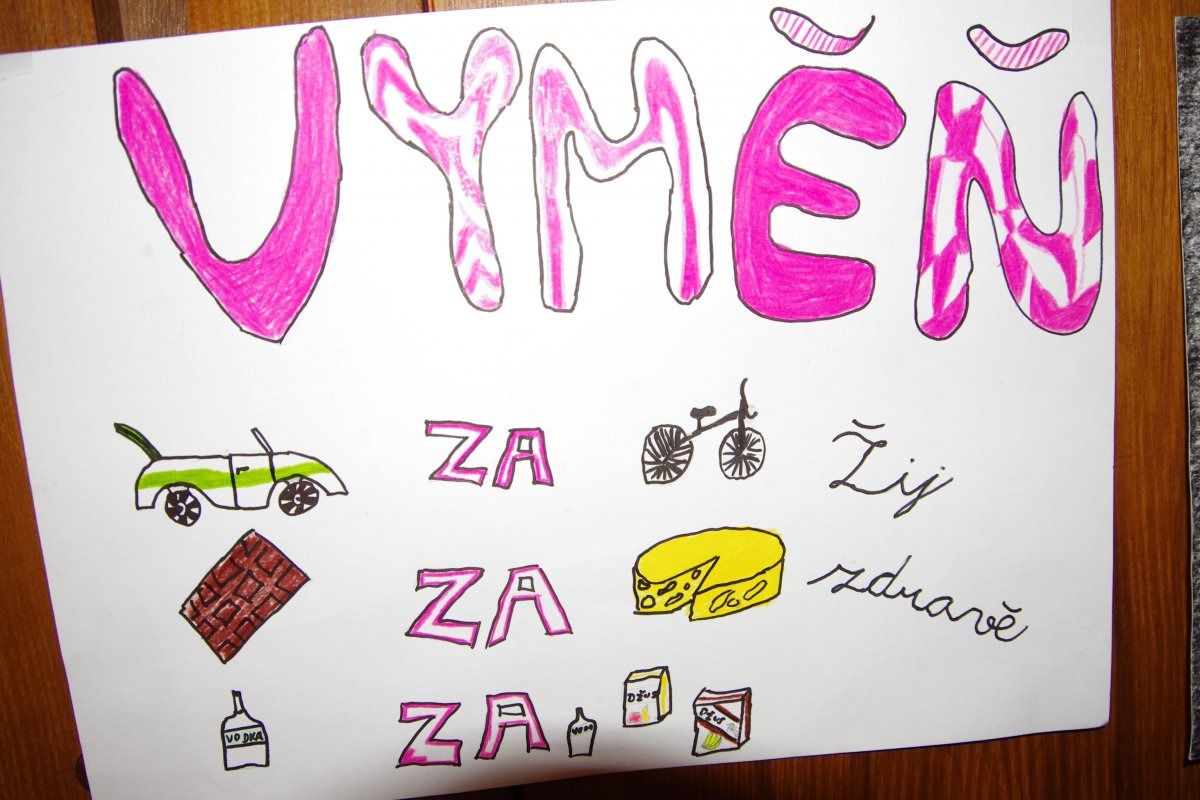 VYMĚŇ
ZA
Žij
ZA
zdravě
ZA
VODKA
DŽUS
DŽUS